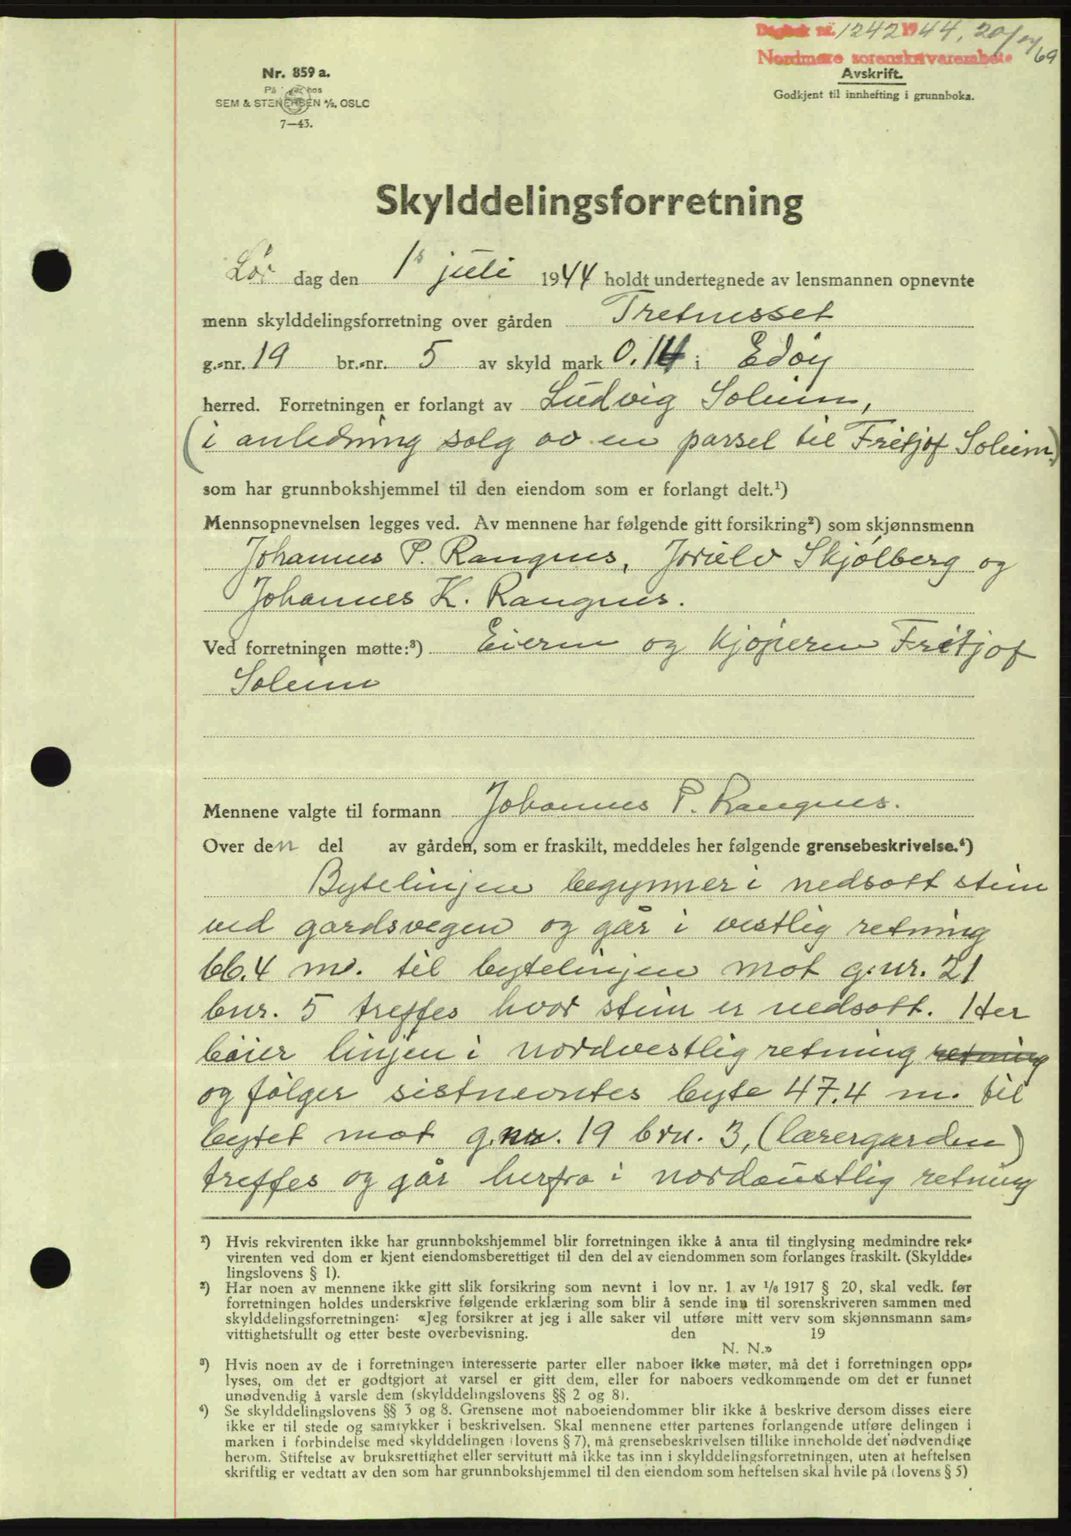 Dagbok nr. 1242 1944, 20/7
Nordmøre sorenskriverembete
69
Nr. 859 a.
På lager hos
SEM & STENERSEN A/S, OSLO
7—43.
Avskrift.
Godkjent til innhefting i grunnboka.
Skylddelingsforretning
Lør dag den 1s juli 1944 holdt undertegnede av lensmannen opnevnte
menn skylddelingsforretning over gården Tretnesset
g.-nr. 19 br.-nr. 5 av skyld mark 0.14 i Edøy
herred. Forretningen er forlangt av Ludvig Soleim,
(i anledning salg av en parsel til Fritjof Soleim)
som har grunnbokshjemmel til den eiendom som er forlangt delt.¹)
Mennsopnevnelsen legges ved. Av mennene har følgende gitt forsikring²) som skjønnsmenn
Johannes P. Rangnes, Joralv Skjølberg og
Johannes K. Rangnes.
Ved forretningen møtte:³) Eieren og kjøperen Fritjof
Soleim
Mennene valgte til formann Johannes P. Rangnes.
Over den del av gården, som er fraskilt, meddeles her følgende grensebeskrivelse.⁴)
Bytelinjen begynner i nedsatt stein
ved gardsvegen og går i vestlig retning
66.4 m. til bytelinjen mot g.nr. 21
bnr. 5 treffes hvor stein er nedsatt. Her
bøier linjen i nordvestlig retning retning
og følger sistnevntes byte 47.4 m. til
bytet mot g.nr. 19 brn. 3, (lærergarden)
treffes og går herfra i nordaustlig retning
¹) Hvis rekvirenten ikke har grunnbokshjemmel blir forretningen ikke å anta til tinglysing medmindre rek-
virenten ved dom er kjent eiendomsberettiget til den del av eiendommen som forlanges fraskilt. (Skyldde-
lingslovens § 1).
²) Har noen av mennene ikke gitt slik forsikring som nevnt i lov nr. 1 av 1/6 1917 § 20, skal vedk. før
forretningen holdes underskrive følgende erklæring som blir å sende inn til sorenskriveren sammen med
skylddelingsforretningen: «Jeg forsikrer at jeg i alle saker vil utføre mitt verv som skjønnsmann sam-
vittighetsfullt og etter beste overbevisning. den 19
N. N.»
³) Hvis noen av de i forretningen interesserte parter eller naboer ikke møter, må det i forretningen opp-
lyses, om det er godtgjort at varsel er gitt dem, eller for naboers vedkommende om det er funnet
unødvendig å varsle dem (skylddelingslovens §§ 2 og 8).
⁴) Se skylddelingslovens §§ 3 og 8. Grensene mot naboeiendommer blir ikke å beskrive dersom disses eiere
ikke er til stede og samtykker i beskrivelsen. Skal mennene etter partenes forlangende utføre delingen i
marken i forbindelse med skylddelingen (lovens § 7), må grensebeskrivelsen tillike inneholde det nødvendige
herom. Stiftelse av bruksrettighet eller servitutt må ikke tas inn i skylddelingsforretningen, uten at heftelsen
skriftlig er vedtatt av den som har grunnbokshjemmel til den eiendom som heftelsen skal hvile på (lovens § 5)